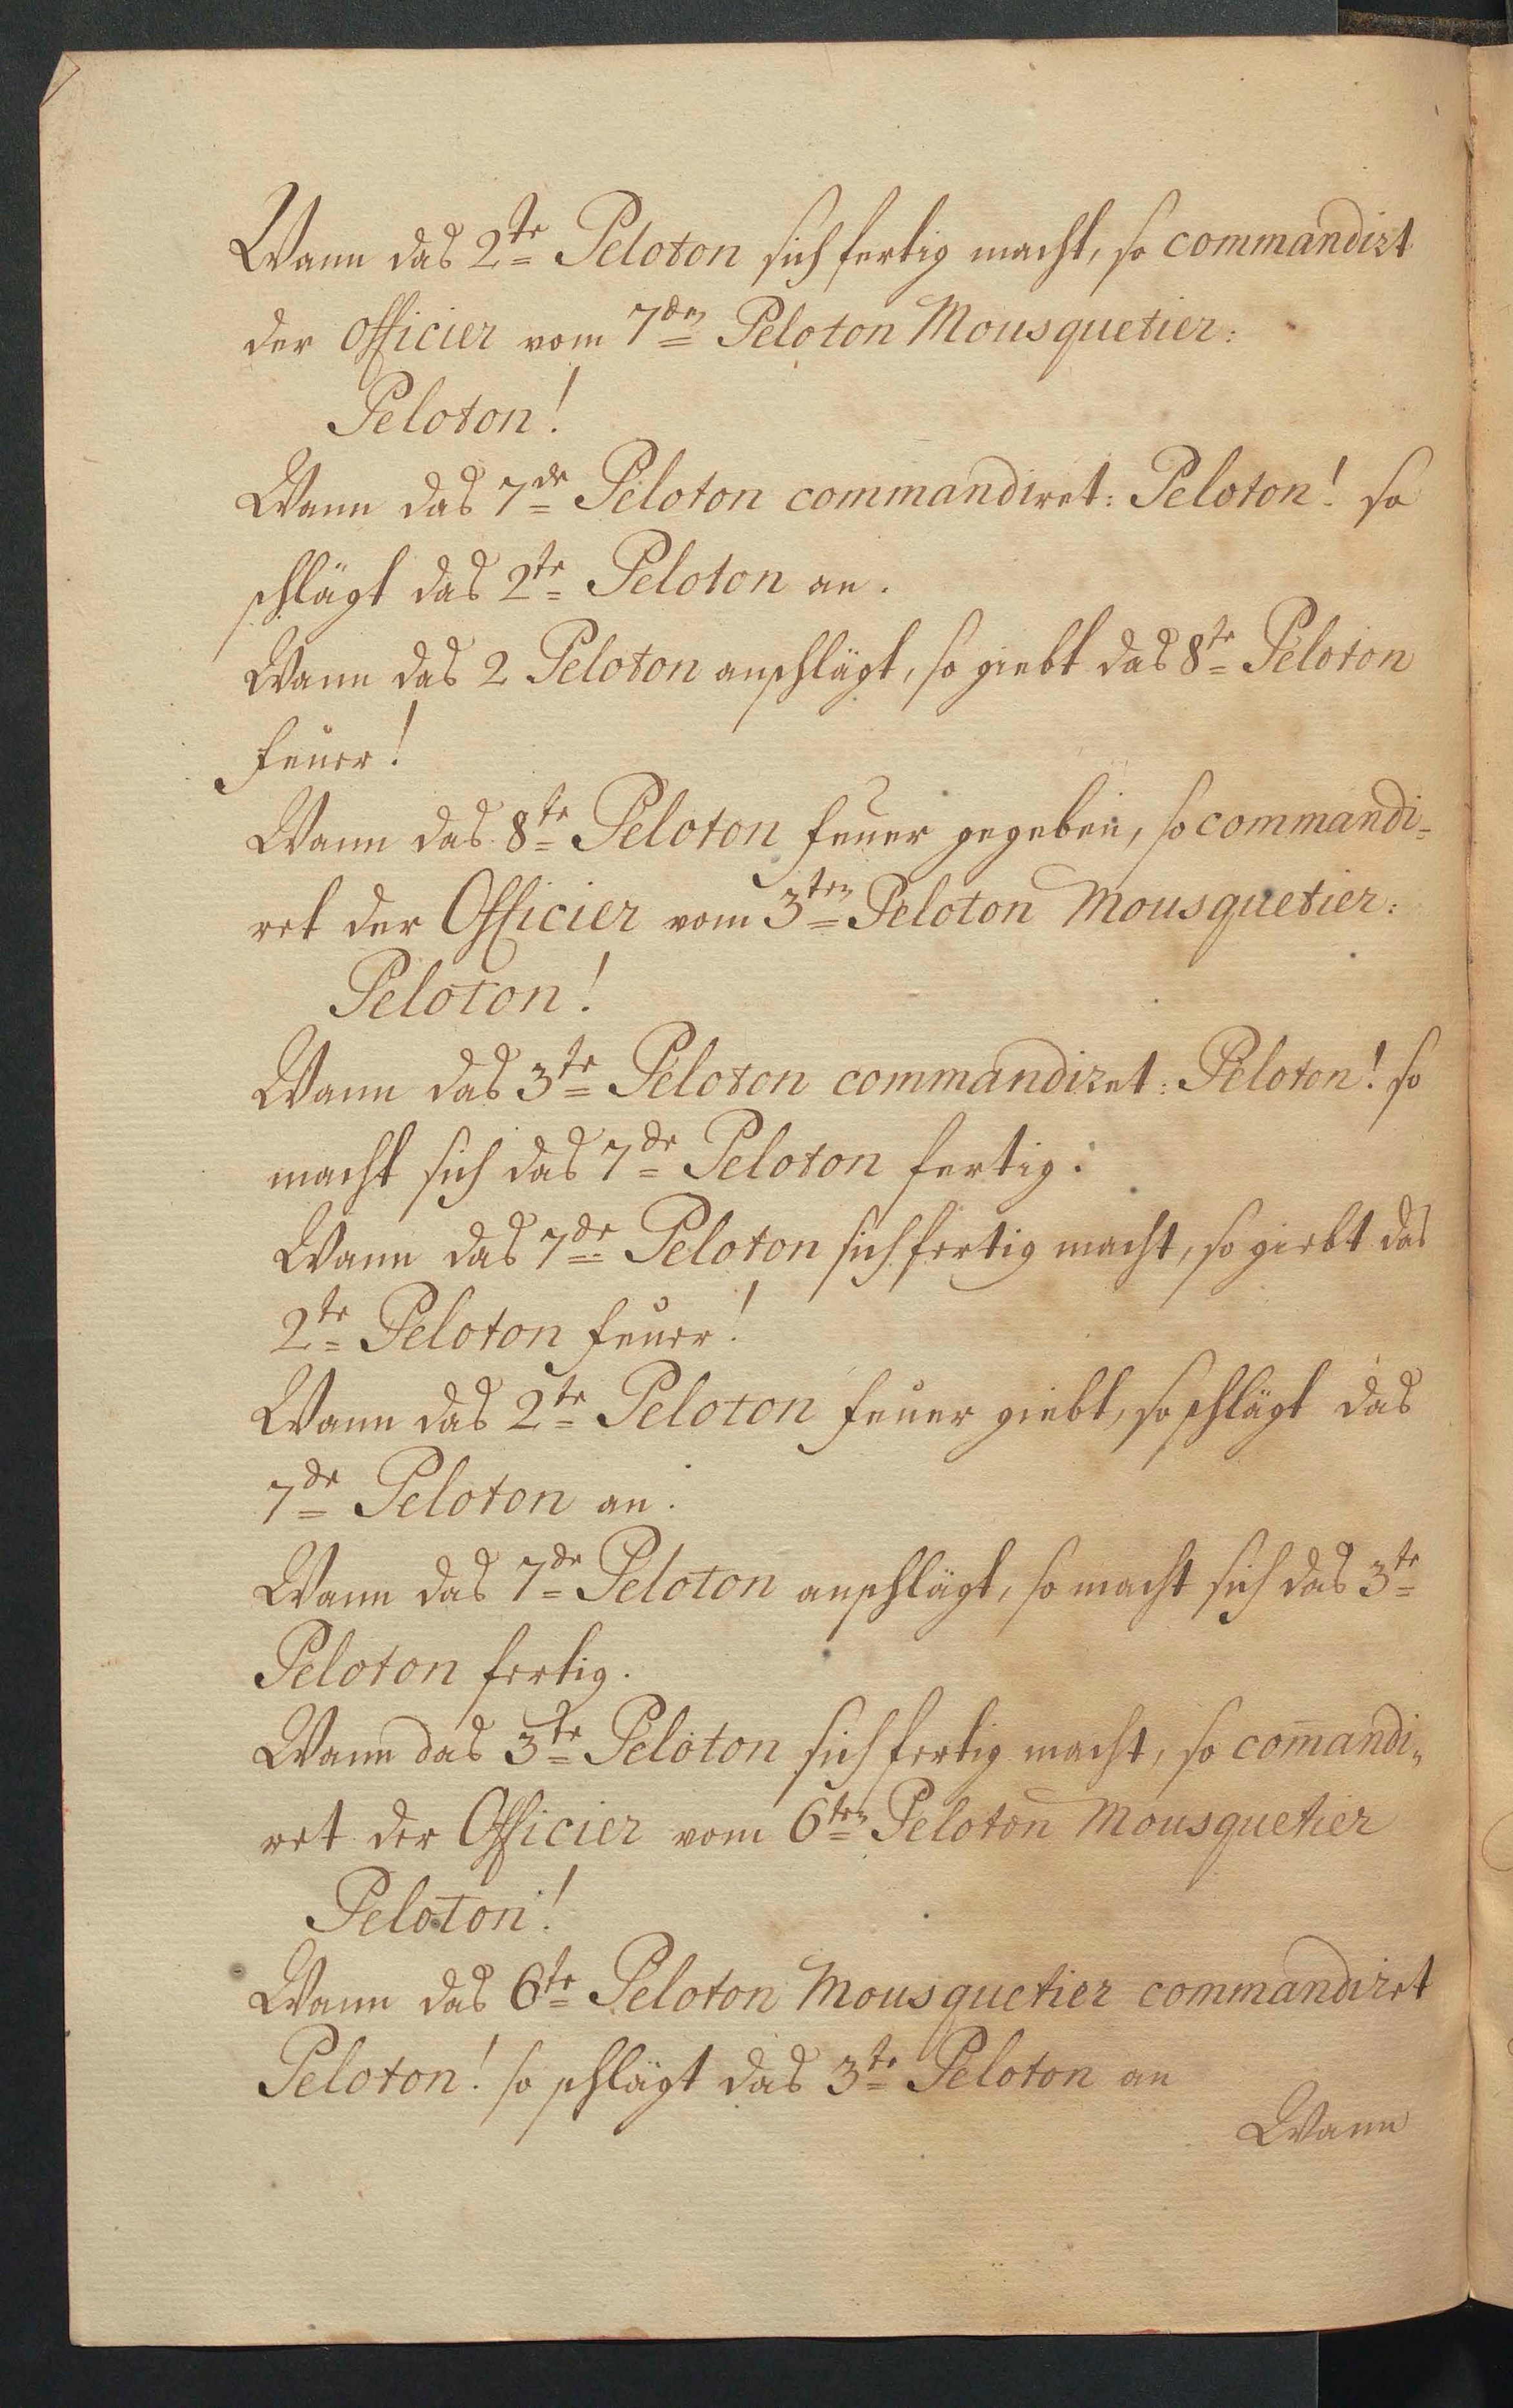 Wann das 2te Peloton sich fertig macht, so commandirt
der Officier vom 7den Peloton Mousquetier:
Peloton!
Wann das 7de Peloton commandiret: Peloton! so
schlägt das 2te Peloton an.
Wann das 2 Peloton anschlägt, so giebt das 8te Peloton
feuer!
Wann das 8te Peloton feuer gegeben, so commandi=
ret der Officier vom 3ten Peloton Mousquetier:
Peloton!
Wann das 3te Peloton commandiret: Peloton! so
macht sich das 7de Peloton fertig.
Wann das 7de Peloton sich fertig macht, so giebt das
2te Peloton feuer!
Wann das 2te Peloton feuer giebt, so schlägt das
7de Peloton an.
Wann das 7de Peloton anschlägt, so macht sich das 3te
Peloton fertig.
Wann das 3te Peloton sich fertig macht, so com̅andi=
ret der Officier vom 6ten Peloton Mousquetier
Peloton!
Wann das 6te Peloton Mousquetier commandiret
Peloton! so schlägt das 3te Peloton an
Wann